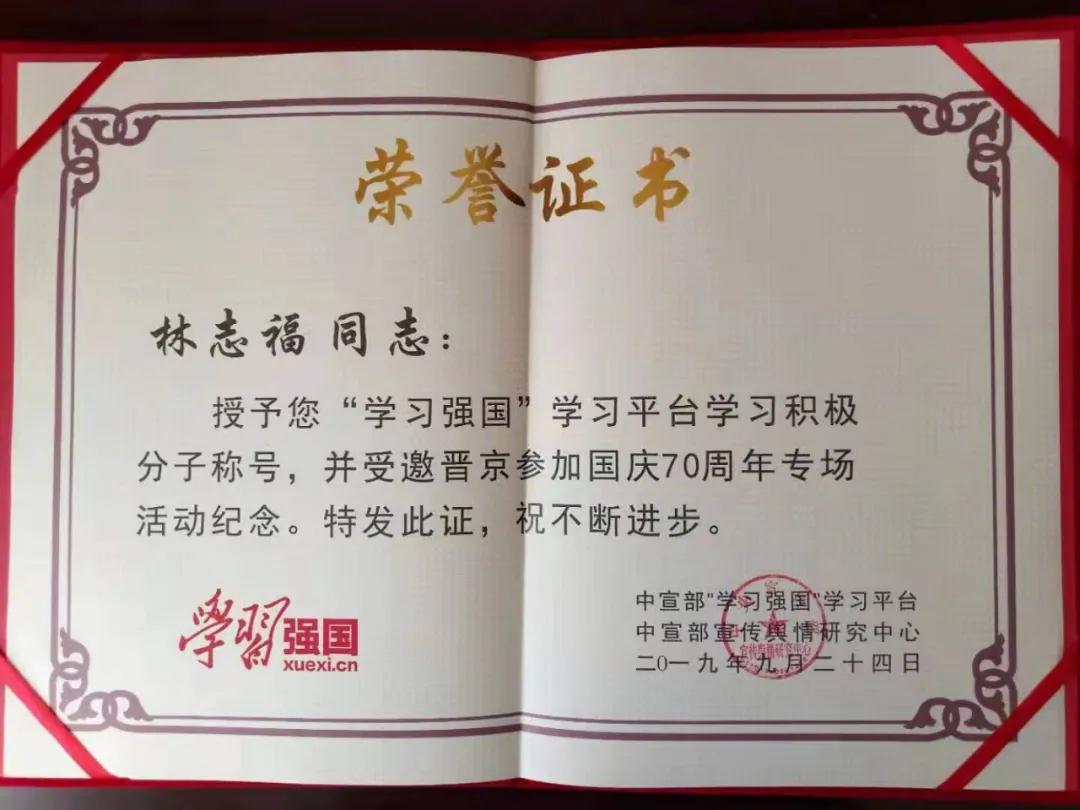 荣誉证书
林志福 同志：
授予您“学习强国”学习平台学习积极
分子称号，并受邀晋京参加国庆70周年专场
活动纪念。特发此证，祝不断进步。
學習强国
xuexi.cn
中宣部"学习强国"学习平台
中宣部宣传舆情研究中心
二0一九年九月二十四日
宣传舆情研究中心